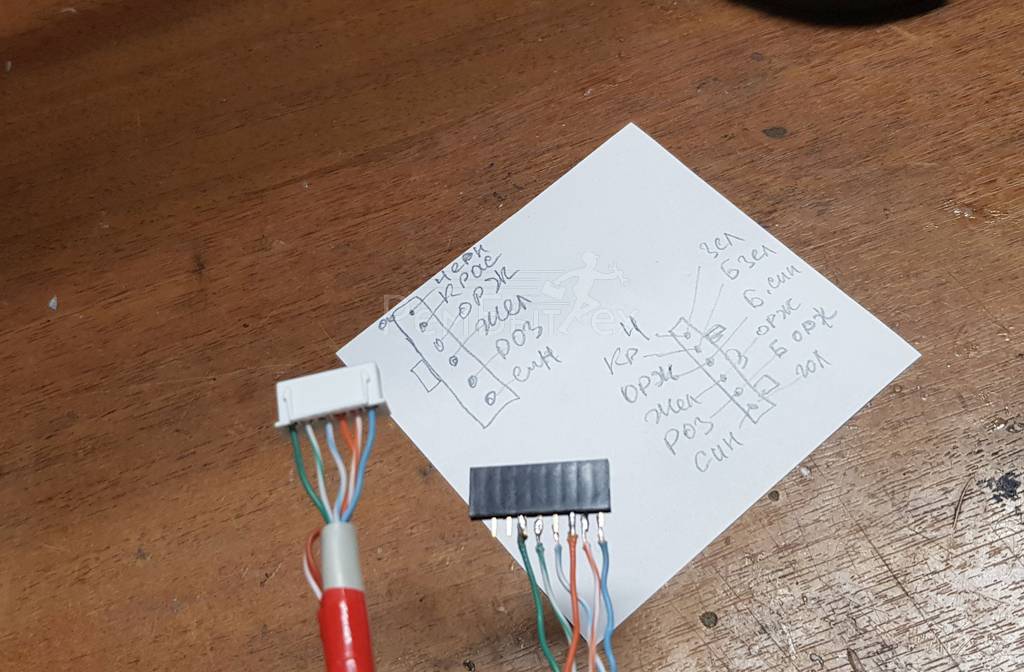 черн
крас
орж
жел
роз
син
зел
Б зел
Б. син
орж
Б орж
гол
Ч
кр
орж
жел
роз
син